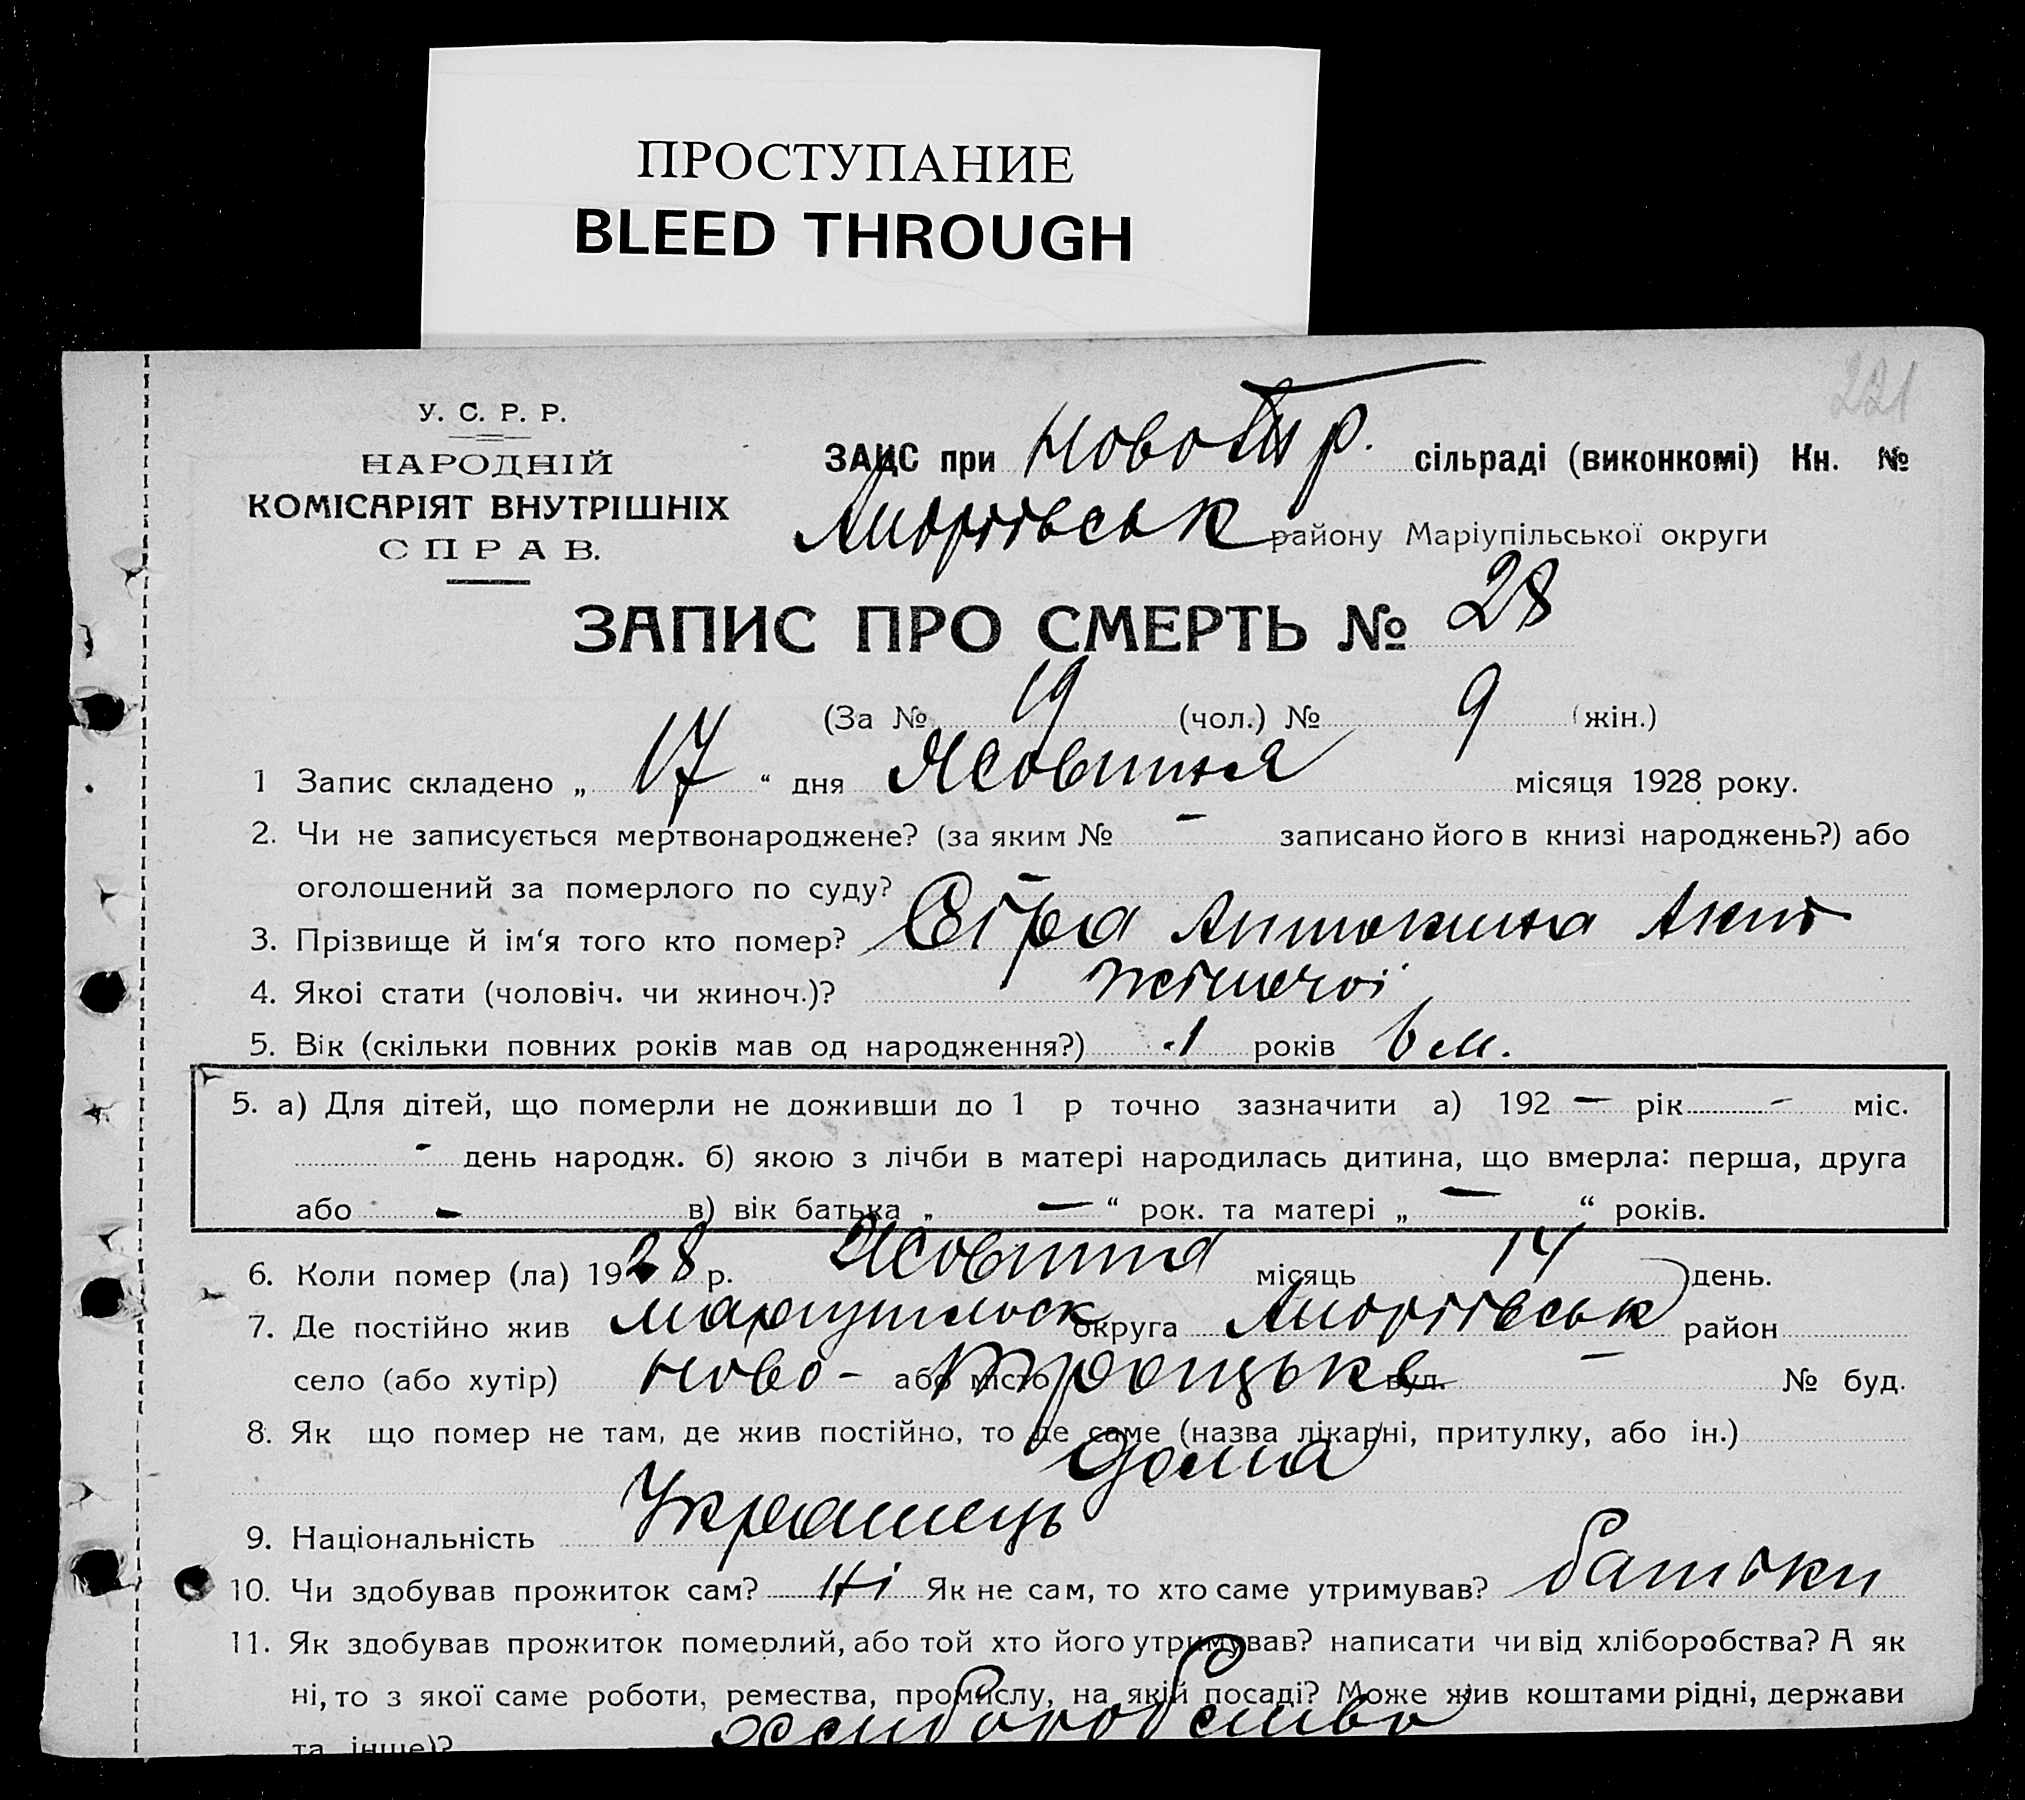 ПРОСТУПАНИЕ
BLEED THROUGH
221
У. С. Р. Р.
НАРОДНІЙ
КОМІСАРІЯТ ВНУТРІШНІХ
СПРАВ.
ЗАЦС при Новотр. сільраді (виконкомі) Кн. №
району Маріупільської округи
ЗАПИС ПРО СМЕРТЬ № 28
(За № 19 (чол.) № 9 (жін.)
1 Запис складено „ 17 “ дня Жовтня місяця 1928 року.
2. Чи не записується мертвонароджене? (за яким № - записано його в книзі народжень?) або
оголошений за померлого по суду? -
3. Прізвище й ім‘я того кто помер? Сіра Антонина
4. Якоі стати (чоловіч. чи жиноч.)? жіночої
5. Вік (скільки повних років мав од народження?) 1 років 6 м.
5. а) Для дітей, що померли не доживши до 1 р точно зазначити а) 192 — рік - міс.
- день народж. б) якою з лічби в матері народилась дитина, що вмерла: перша, друга
або - в) вік батька „ — “ рок. та матері „ — “ років.
6. Коли помер (ла) 1928 р. Жовтня місяць 14 день.
7. Де постійно жив округа район
село (або хутір) Ново- або місто Троцьке вул. — № буд.
8. Як що помер не там, де жив постійно, то де саме (назва лікарні, притулку, або ін.)
дома
9. Національність Украинець
10. Чи здобував прожиток сам? Ні Як не сам, то хто саме утримував? батьки
11. Як здобував прожиток померлий, або той хто його утримував? написати чи від хліборобства? А як
ні, то з якої саме роботи, ремества, промислу, на якій посаді? Може жив коштами рідні, держави
та інше)?